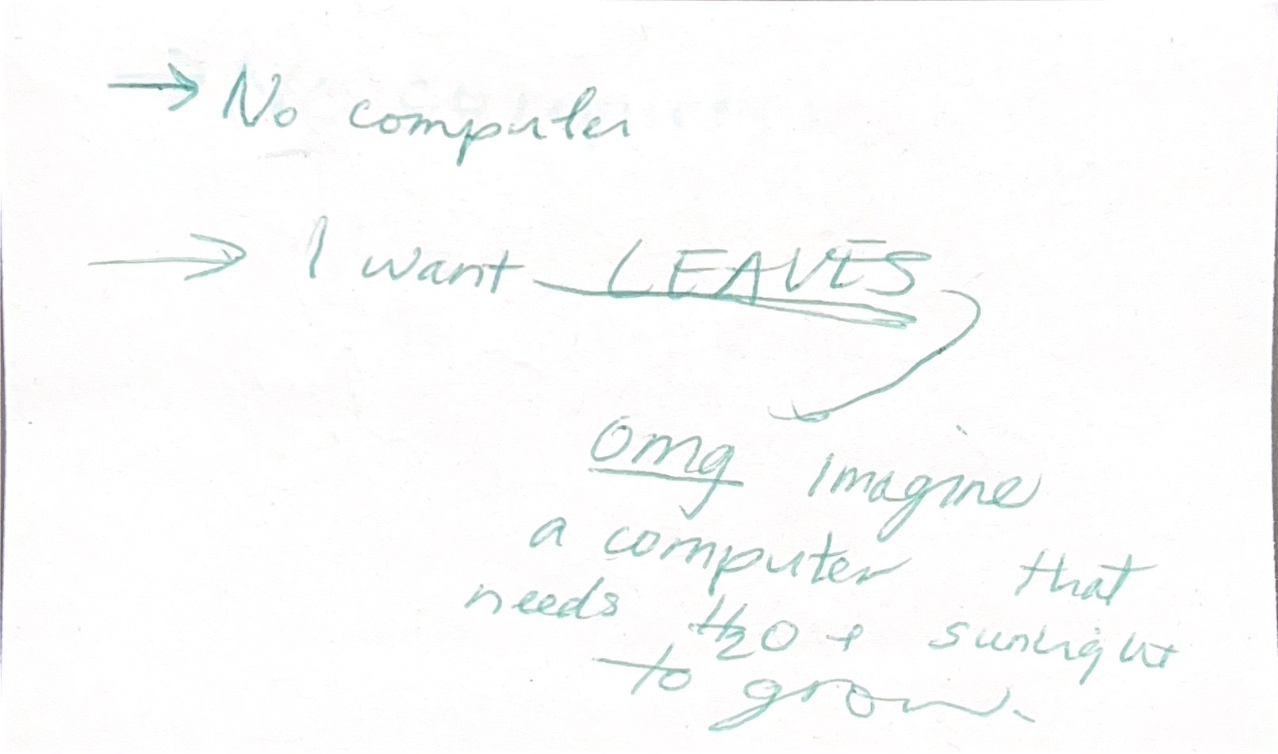 → No computer
→ I want LEAVES
omg imagine
a computer that
needs H₂O + sunlight
to grow.